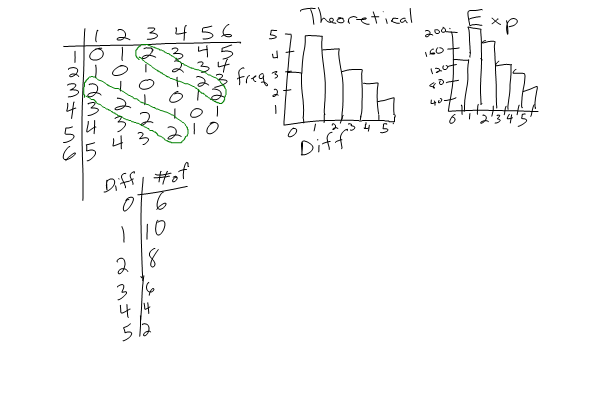 Theoretical
Exp
1 2 3 4 5 6
1 0 1 2 3 4 5
2 1 0 1 2 3 4
3 2 1 0 1 2 3
4 3 2 1 0 1 2
5 4 3 2 1 0 1
6 5 4 3 2 1 0
freq
5
4
3
2
1
0 1 2 3 4 5
Diff
200
160
120
80
40
0 1 2 3 4 5
Diff #of
0 6
1 10
2 8
3 6
4 4
5 2